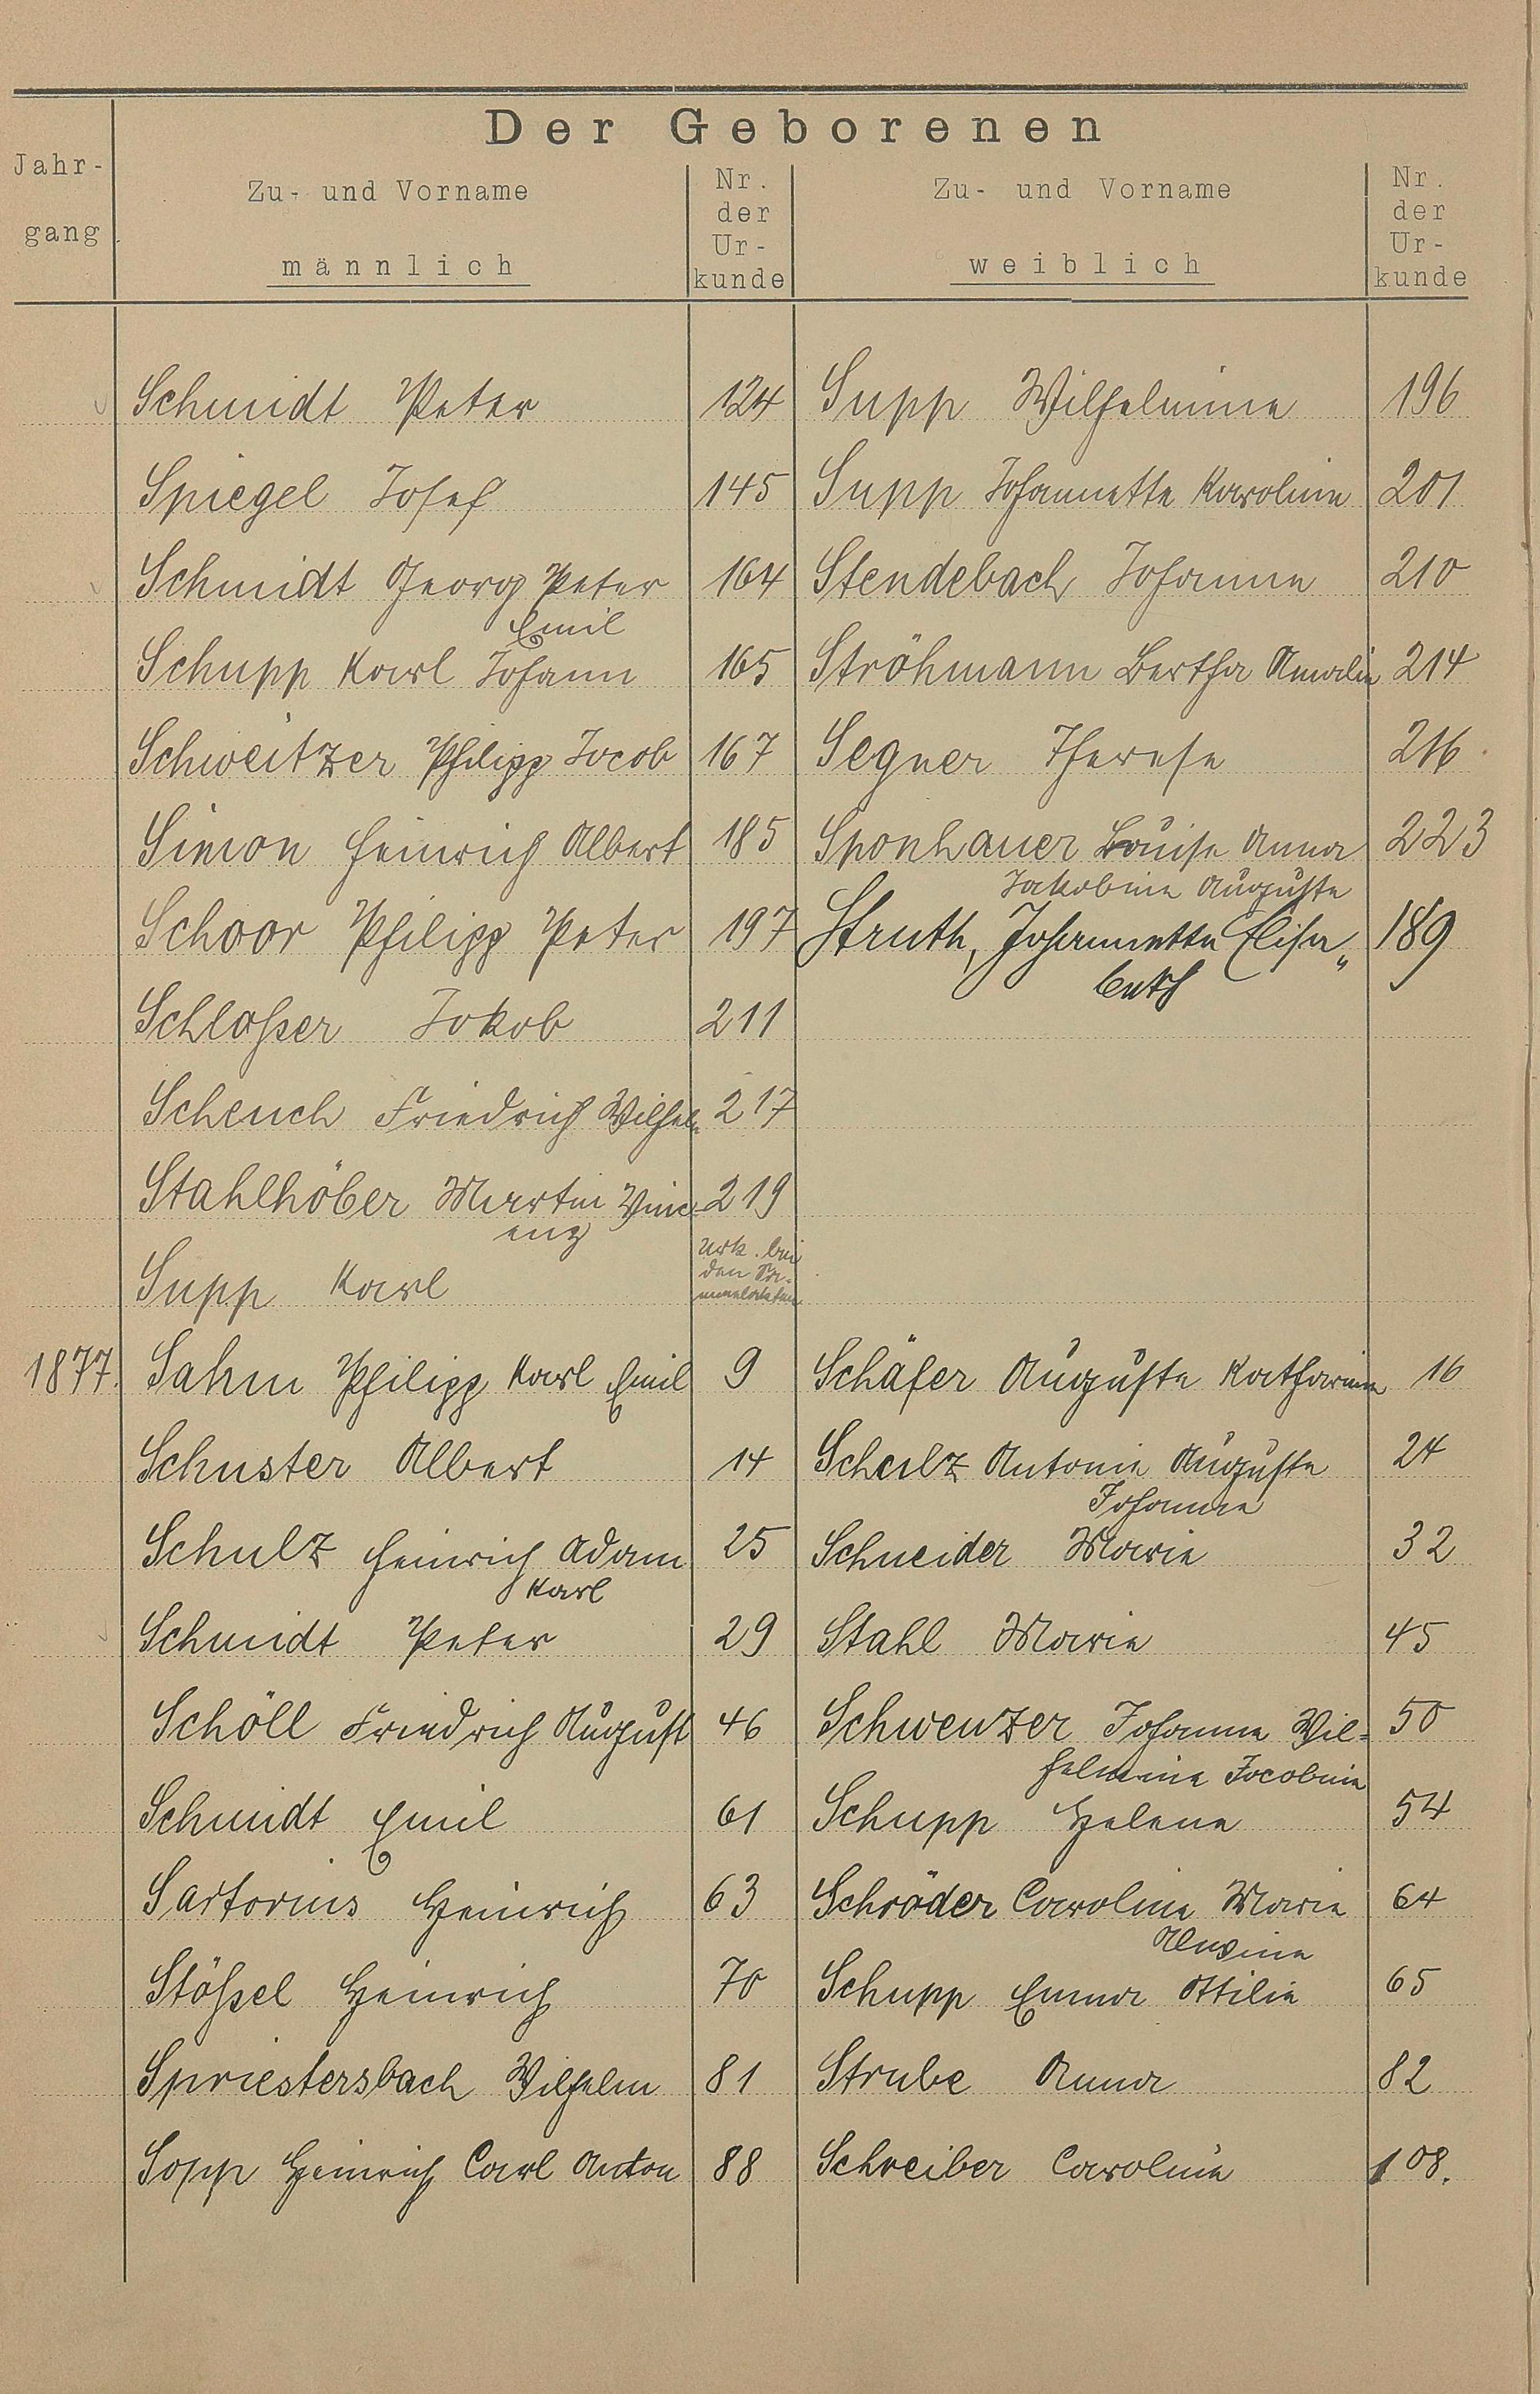 Der Geborenen
Jahr-
gang
Zu- und Vorname
männlich
Nr.
der
Ur-
kunde
Zu- und Vorname
weiblich
Nr.
der
Ur-
kunde
Schmidt Peter 124 Supp Wilhelmine 196
Spiegel Josef 145 Supp Johannette Karoline 201
Schmidt Georg Peter 164 Stendebach Johanna 210
Emil
Schupp Karl Johann 165 Ströhmann Bertha Amalie 214
Schweitzer Philipp Jacob 167 Segner Therese 216
Simon Heinrich Albert 185 Sponhauer Louise Anna 223
Jakobine Auguste
Schoor Philipp Peter 197 Struth, Johannette Elisa„ 189
beth
Schloßer Jakob 211
Scheuch Friedrich Wilhelm 217
Stahlhöber Martin Vinc- 219
enz
Urk. bei
den
Supp Karl
1877. Sahm Philipp Karl Emil 9 Schäfer Auguste Katharine 16
Schuster Albert 14 Schulz Antonie Auguste 24
Johanna
Schulz Heinrich Adam 25 Schneider Marie 32
Karl
Schmidt Peter 29 Stahl Marie 45
Schöll Friedrich August 46 Schwenzer Johanna Wil= 50
helmine Jacobine
Schmidt Emil 61 Schupp Helene 54
Sartorius Heinrich 63 Schröder Caroline Marie 64
Alwine
Stößel Heinrich 70 Schupp Emma Ottilie 65
Spriestersbach Wilhelm 81 Strube Anna 82
Sopp Heinrich Carl Anton 88 Schreiber Caroline 108.